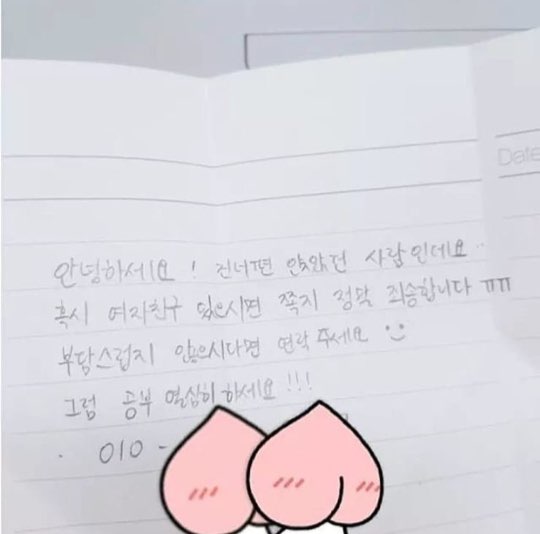 Date
안녕하세요! 건너편 앉았던 사람인데요..
혹시 여자친구 있으시면 쪽지 정말 죄송합니다 ㅠㅠ
부담스럽지 않으시다면 연락주세요 :)
그럼 공부 열심히 하세요!!!
010 -